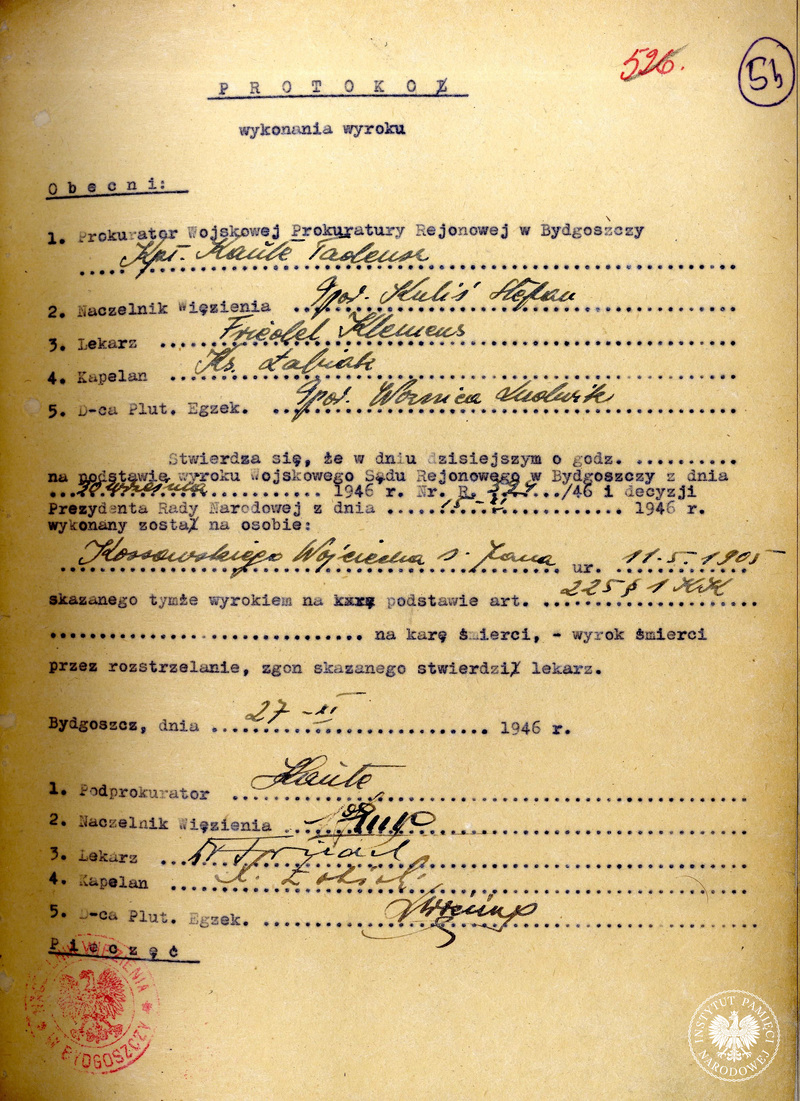 526.
5h
PROTOKOŁ
wykonania wyroku
Obecni:
1. Prokurator Wojskowej Prokuratury Rejonowej w Bydgoszczy
Kpt. Haute Tadeusz
2. Naczelnik Więzienia Ppor. Kuliś Stefan
3. Lekarz Friedel Klemens
4. Kapelan Ks. Łabiak
5. D-ca Plut. Egzek. Ppor. Woźnica Ludwik
Stwierdza się, że w dniu dzisiejszym o godz. ..........
na podstawie wyroku Wojskowego Sądu Rejonowego w Bydgoszczy z dnia
września 1946 r. Nr. R. /46 i decyzji
Prezydenta Rady Narodowej z dnia 1946 r.
wykonany został na osobie:
Kossowskiego Wojciecha s. Jana ur. 11-5-1905
skazanego tymże wyrokiem na karę podstawie art. 225 § 1 KK
na karę śmierci, - wyrok śmierci
przez rozstrzelanie, zgon skazanego stwierdził lekarz.
Bydgoszcz, dnia 27-XI 1946 r.
1. Podprokurator Haute
2. Naczelnik Więzienia
3. Lekarz
4. Kapelan
5. D-ca Plut. Egzek.
Pieczęć
W BYDGOSZCZY
INSTYTUT PAMIĘCI NARODOWEJ